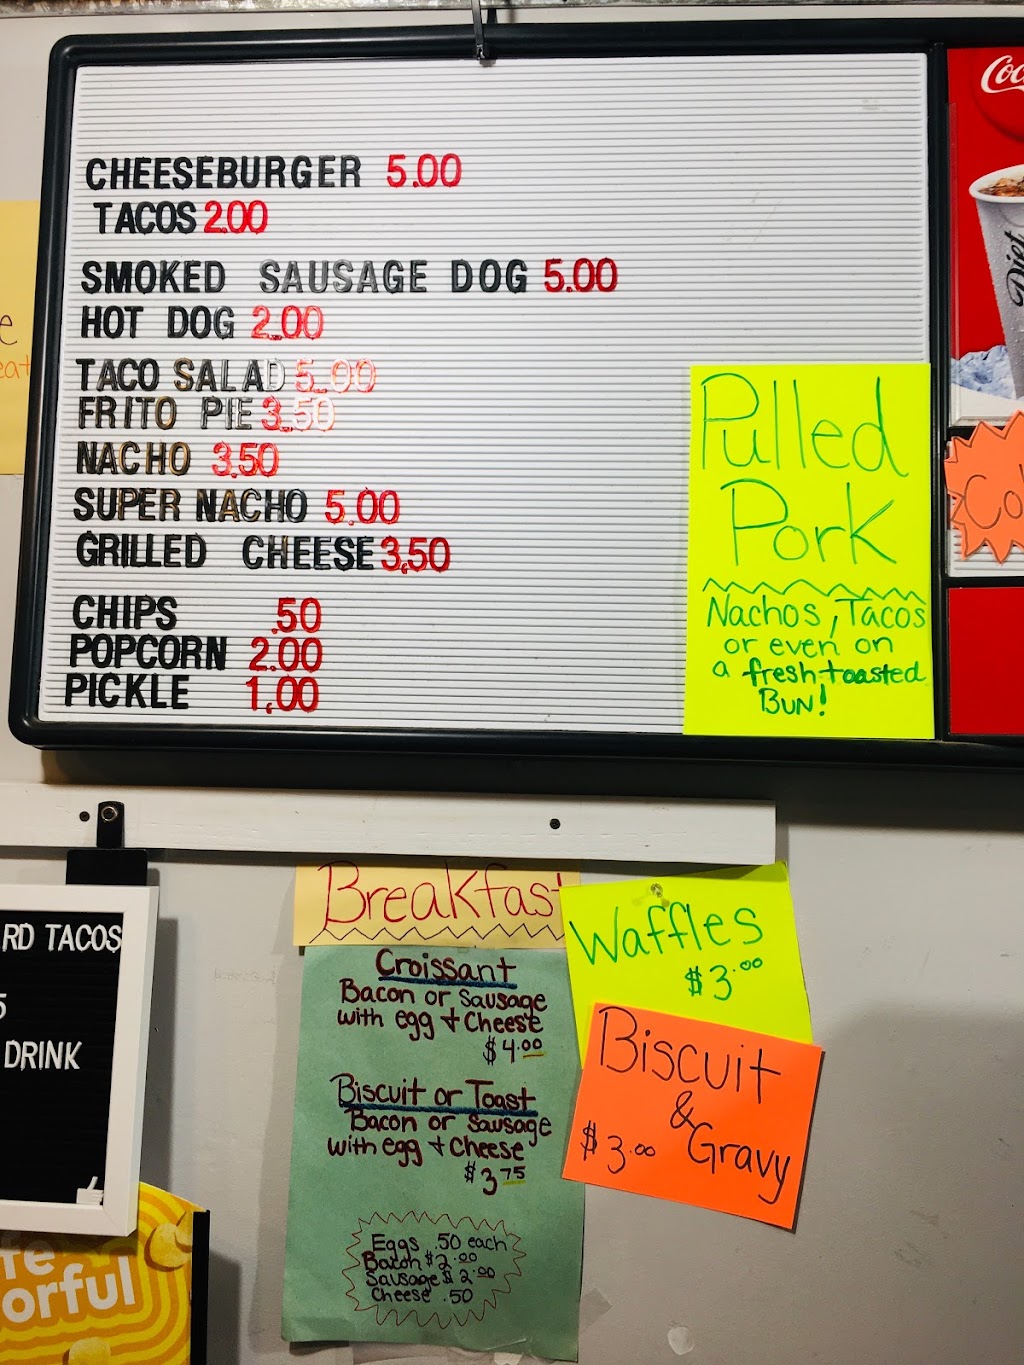 CHEESEBURGER 5.00
TACOS 2.00
SMOKED SAUSAGE DOG 5.00
HOT DOG 2.00
TACO SALAD 5.00
FRITO PIE 3.50
NACHO 3.50
SUPER NACHO 5.00
GRILLED CHEESE 3.50
CHIPS .50
POPCORN 2.00
PICKLE 1.00
Pulled
Pork
Nachos, Tacos
or even on
a fresh toasted
BUN!
Diet
Breakfast
Croissant
Bacon or Sausage
with egg + Cheese
$4.00
Biscuit or Toast
Bacon or Sausage
with egg + Cheese
$3.75
Eggs .50 each
Bacon $2.00
Sausage $2.00
Cheese .50
Waffles
$3.00
Biscuit
&
$3.00 Gravy
RD TACOS
5
DRINK
orful